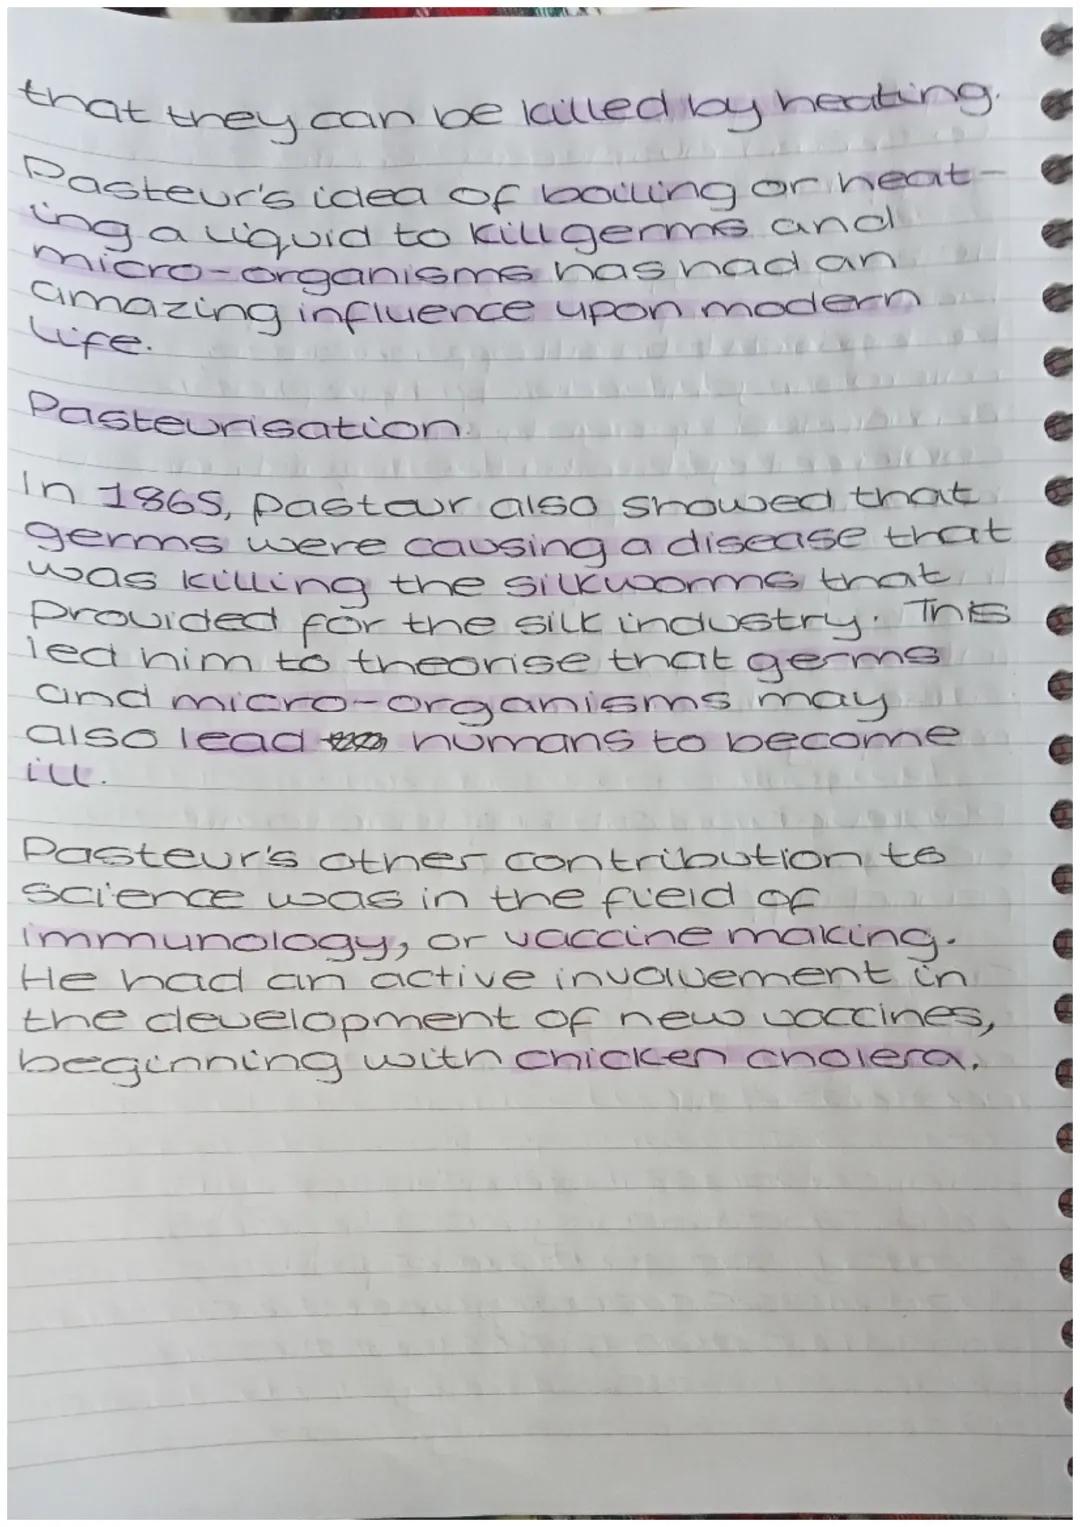 that they can be killed by heating.
Pasteur's idea of boiling or heat-
ing a liquid to kill germs and
micro-organisms has had an
amazing influence upon modern
life.
Pasteurisation.
In 1865, Pasteur also showed that
germs were causing a disease that
was killing the silkworms that
provided for the silk industry. This
led him to theorise that germs
and micro-organisms may
also lead humans to become
ill.
Pasteur's other contribution to
science was in the field of
immunology, or vaccine making.
He had an active involvement in
the development of new vaccines,
beginning with chicken cholera.